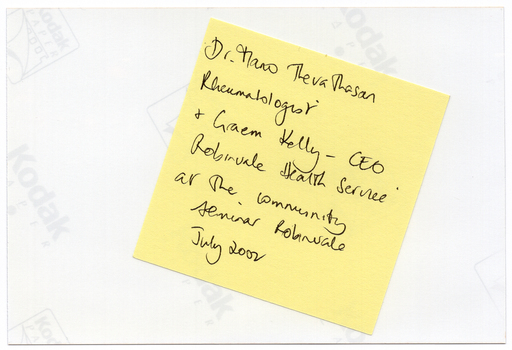 Dr. Mano Thevathasan
Rheumatologist
& Graem Kelly - CEO
Robinvale Health Service
at the community
seminar Robinvale
July 2002
Kodak
Kodak
Kodak
Kodak